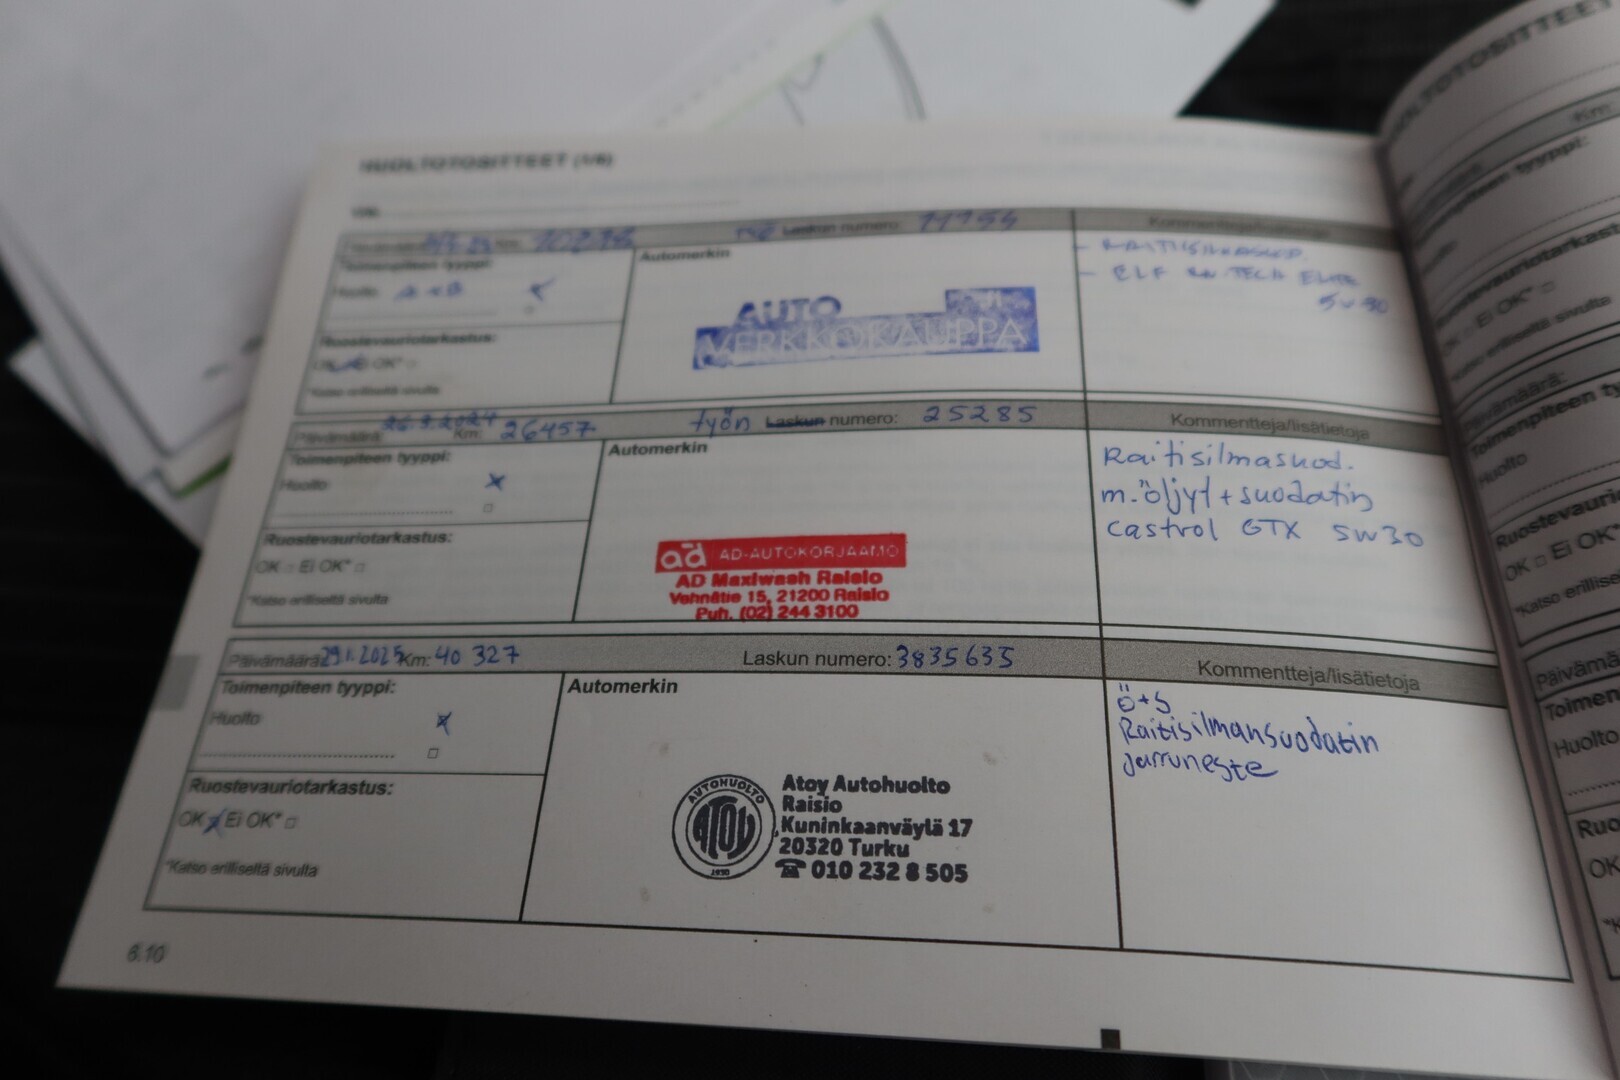 HUOLTOTOSITTEET (1/6)
VIN:
Päivämäärä: Km: Laskun numero: 11754 Kommentteja/lisätietoja
Toimenpiteen tyyppi:
Huolto A+B x
Automerkin
AUTO
VERKKOKAUPPA
- RAITISILMASUOD.
- ELF 5W30
Ruostevauriotarkastus:
OK x Ei OK* □
*Katso erilliseltä sivulta
Päivämäärä: 26.9.2024 Km: 26457 työn Laskun numero: 25285 Kommentteja/lisätietoja
Toimenpiteen tyyppi:
Huolto x
□
Automerkin
ad AD-AUTOKORJAAMO
AD Maxiwash Raisio
Vehnätie 15, 21200 Raisio
Puh. (02) 244 3100
Raitisilmasuod.
m.öljyt+suodatin
castrol GTX 5W30
Ruostevauriotarkastus:
OK □ Ei OK* □
*Katso erilliseltä sivulta
Päivämäärä: 29.1.2025 Km: 40 327 Laskun numero: 3835635 Kommentteja/lisätietoja
Toimenpiteen tyyppi:
Huolto x
□
Automerkin
AUTOHUOLTO
ATOY
1930
Atoy Autohuolto
Raisio
Kuninkaanväylä 17
20320 Turku
☎ 010 232 8 505
ö+s
Raitisilmansuodatin
jarruneste
Ruostevauriotarkastus:
OK x Ei OK* □
*Katso erilliseltä sivulta
6.10
HUOLTOTOSITTEET
Km:
Toimenpiteen tyyppi:
Huolto
Ruostevauriotarkast
OK □ Ei OK* □
*Katso erilliseltä sivulta
Päivämäärä:
Toimenpiteen ty
Huolto
Ruostevauri
OK □ Ei OK*
*Katso erillise
Päivämää
Toimen
Huolto
Ruo
OK